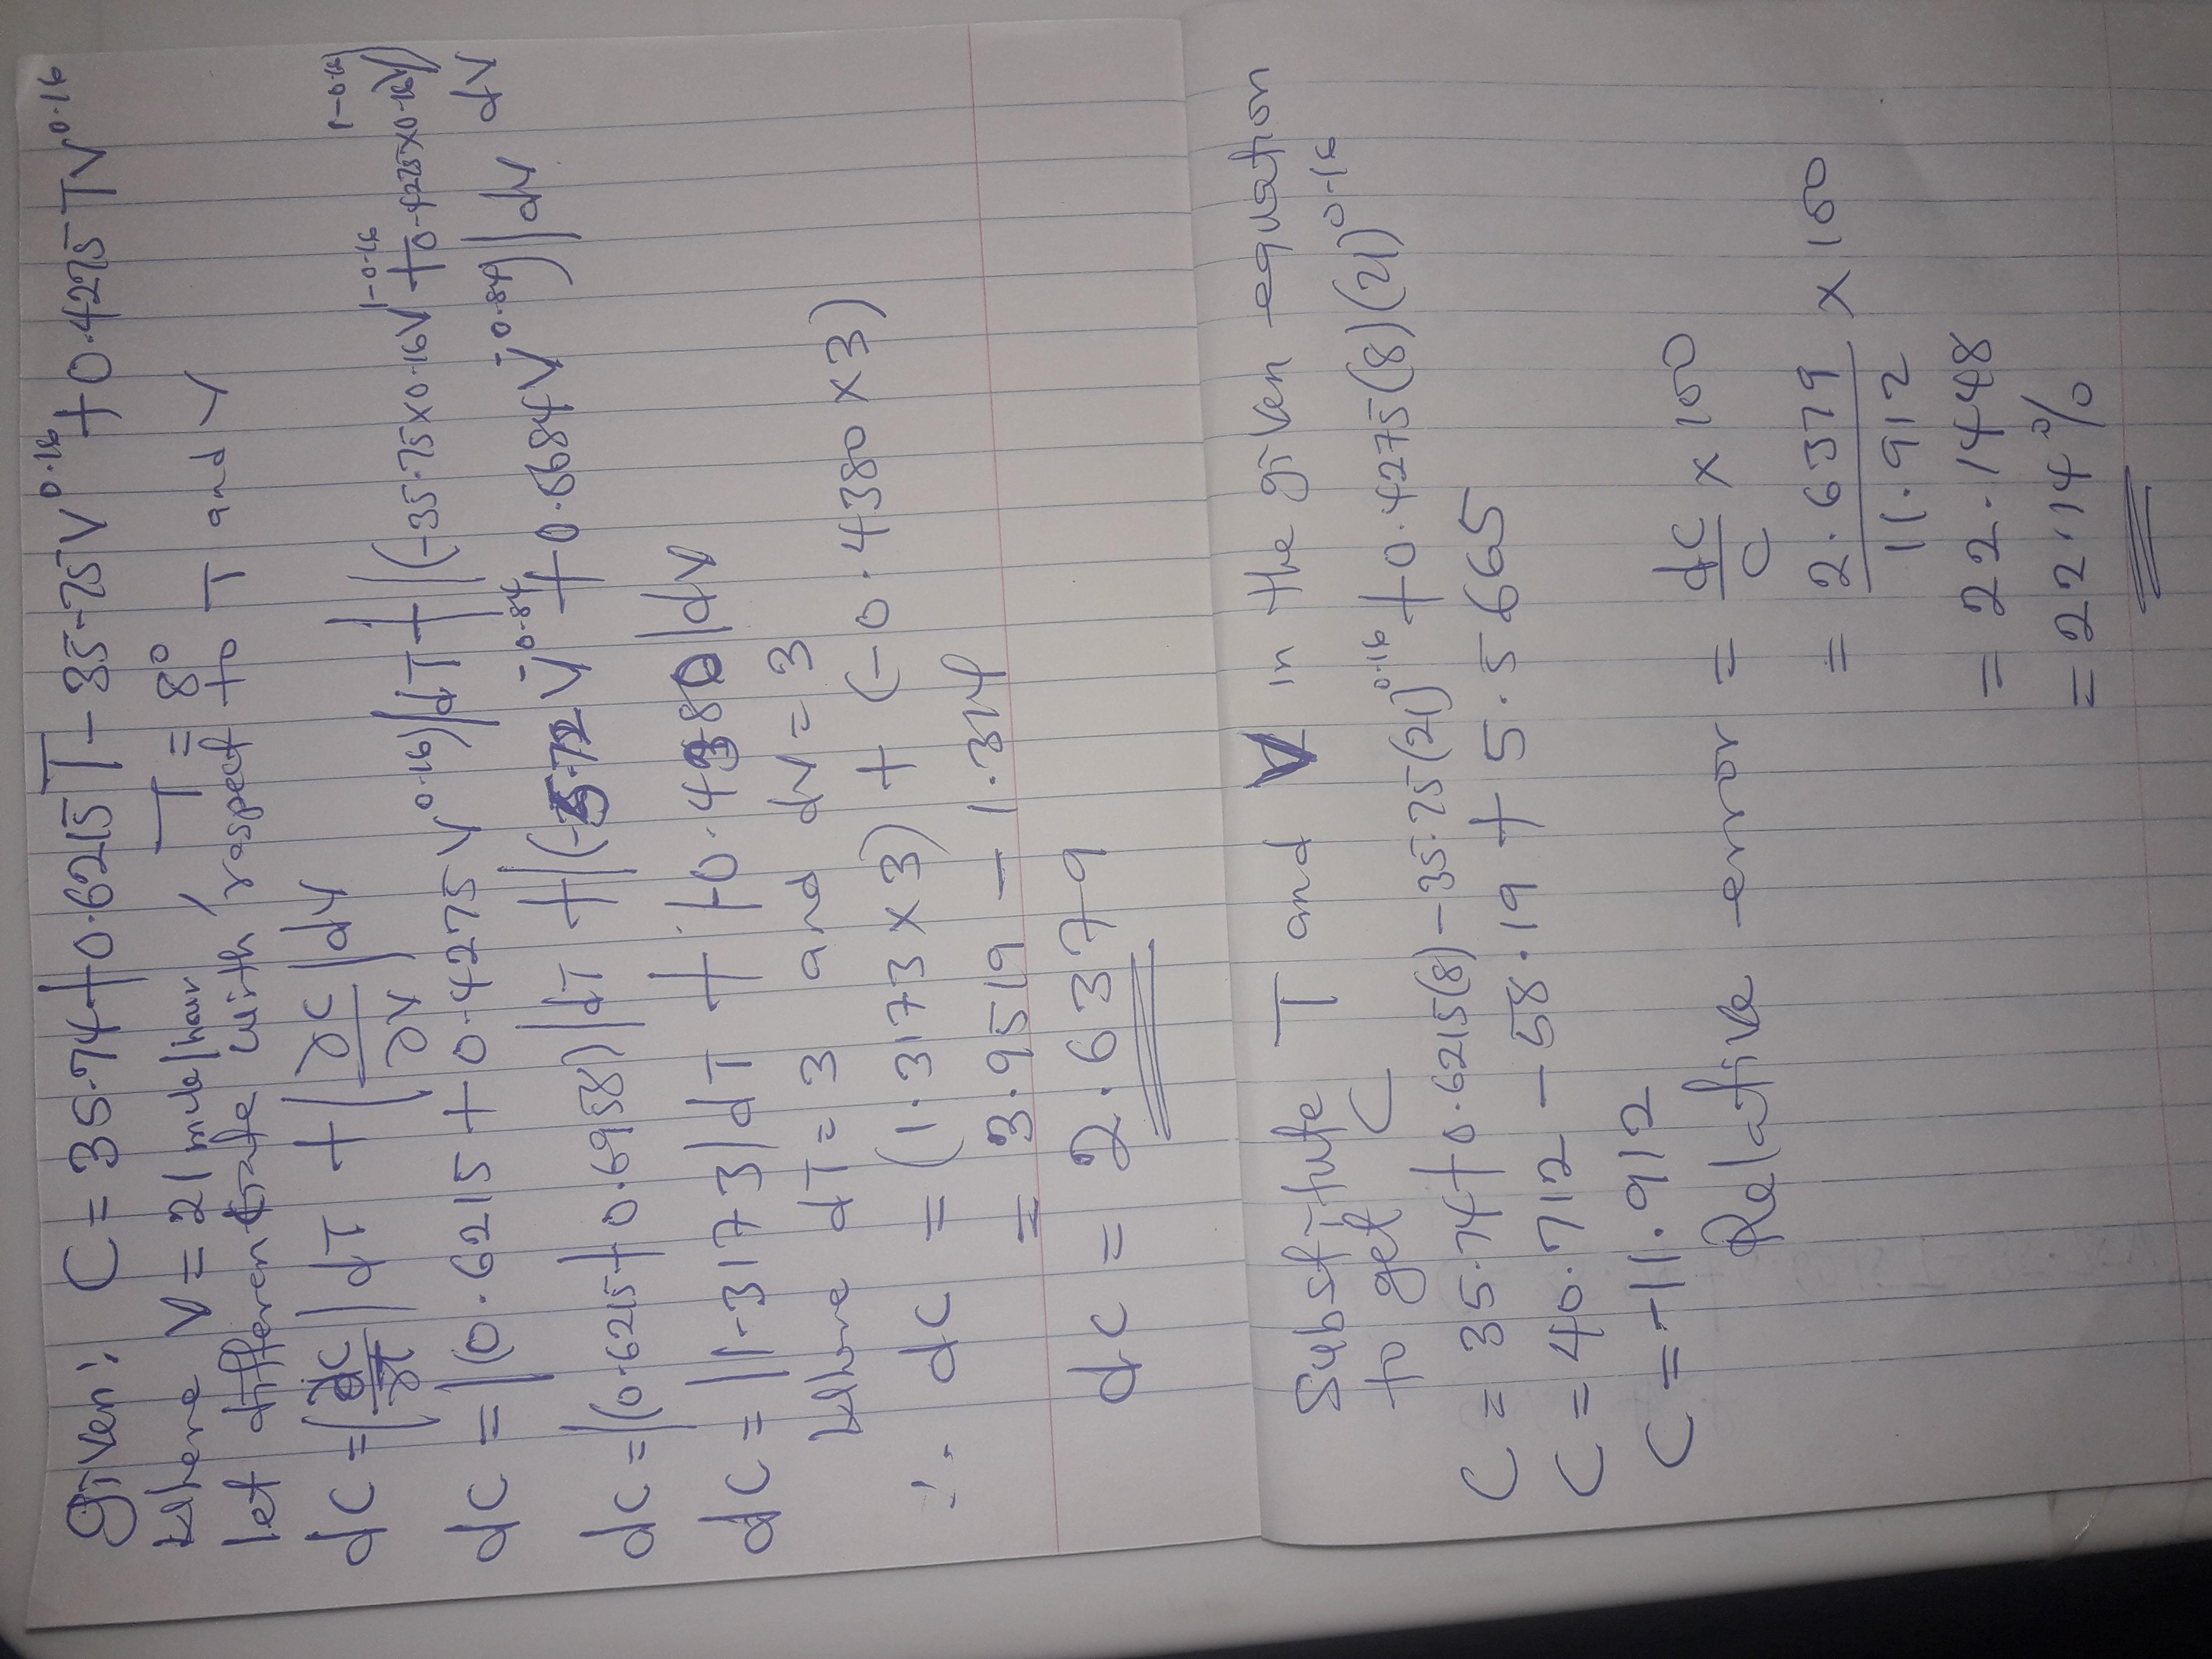 Given: C = 35.74 + 0.6215T - 35.75V^0.16 + 0.4275TV^0.16
Where V = 21 mile/hour, T = 8°
Let differentiate with respect to T and V
dC = |(∂C/∂T)|dT + |(∂C/∂V)|dV
dC = |(0.6215 + 0.4275V^0.16)|dT + |(-35.75×0.16V^1-0.16 + 0.4275×0.16V^1-0.16)| dV
dC = |(0.6215 + 0.6958)|dT + |(-5.72V^-0.84 + 0.684V^-0.84)|dV
dC = |1.3173|dT + |-0.4380|dV
Where dT = 3 and dV = 3
∴ dC = (1.3173 × 3) + (-0.4380 × 3)
= 3.9519 - 1.314
dC = 2.6379
Substitute T and V in the given equation
to get C
C = 35.74 + 0.6215(8) - 35.75(21)^0.16 + 0.4275(8)(21)^0.16
C = 40.712 - 58.19 + 5.5665
C = -11.912
Relative error = dC/C × 100
= 2.6379/11.912 × 100
= 22.1448
= 22.14%